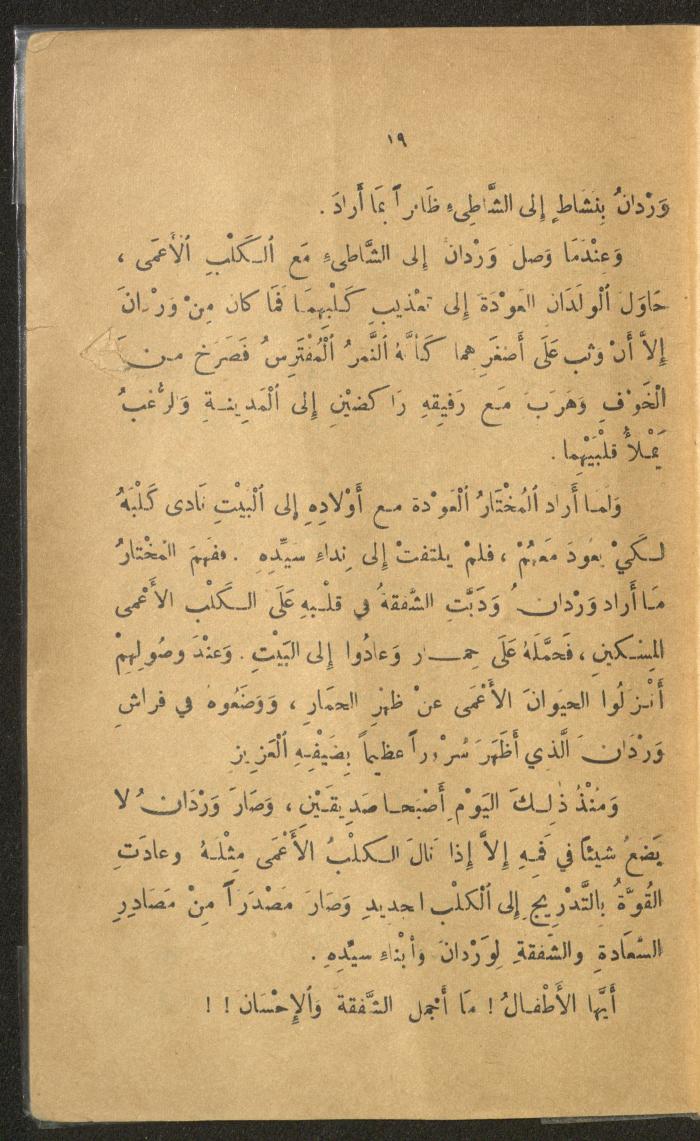 ١٩
وَرْدَانُ بِنَشَاطٍ إِلى الشَّاطِىءِ ظَافِراً بِمَا أَرادَ .
وَعِنْدَمَا وَصلَ وَرْدانُ إِلى الشَّاطىءِ مَع اُلـكَلْبِ اُلأَعمَى ،
حَاوَل اُلْولَدَان العَوْدَةَ إِلى تَعْذيبِ كَلْبِهِمَا فَمَا كان مِنْ وَرْدانَ
إِلاَّ أَنْ وثب عَلَى أَصْغَرِهما كَأَنَّهُ اُلنَّمرُ اُلْمُفْتَرِسُ فَصَرَخ مـن
الْخَوْفِ وَهَرَبَ مَـع رَفيقِهِ رَاكضيْنِ إِلى اُلْمَدِينـةِ وَالرُّعْبُ
يَمْـلأُ قلْبَيْهِما .
وَلمـا أَراد اُلمُخْتَارُ اُلْعَوْدة مـع أَوْلادِهِ إِلى اُلْبَيْتِ نَادى كَلْبَهُ
لـكَيْ يعُودَ مَعَهُمْ ، فلمْ يلتفتْ إِلى نِداءِ سَيِّدِهِ . ففهِمَ المخْتارُ
مَـا أَراد وَرْدان وَدَبَّتِ الشَّفقةُ في قلـبهِ عَلَى الـكَلْب الأَعْمى
المِسْـكينِ ، فَحمَّلَهُ عَلَى حِمـار وَعادُوا إِلى البَيْتِ . وَعنْدَ وصُولِهِمْ
أَنْـزلُوا الحيَوانَ الأَعْمَى عنْ ظهْرِ الحمَارِ ، وَوَضَعُوهُ في فراشِ
وَرْدَانَ الَّذي أَظَهَرَ سُرُوراً عظيماً بِضَيْفِهِ اُلْعَزيزِ
وَمُنْذُ ذٰلِـكَ اليَوْم أَصْبَحـا صَدِيقَـيْنِ ، وَصَارَ وَرْدَانُ لا
يَضعُ شيئاً في فَمهِ إِلاَّ إِذا نَالَ الـكلْبُ الأَعْمَى مِثْلَـهُ وعادَتِ
القُوَّةُ بِالتَّدْرِيجِ إِلى اُلْكلْب الجديدِ وَصَارَ مَصْدَراً مِنْ مَصَادِرِ
السَّعَادةِ والشَّفقةِ لِوَرْدانَ وَأَبْناءِ سيِّدِهِ .
أَيُّها الأَطْفـالُ ! مَا أَجمل الشَّفقةَ وَاُلإِحْسَان ! !